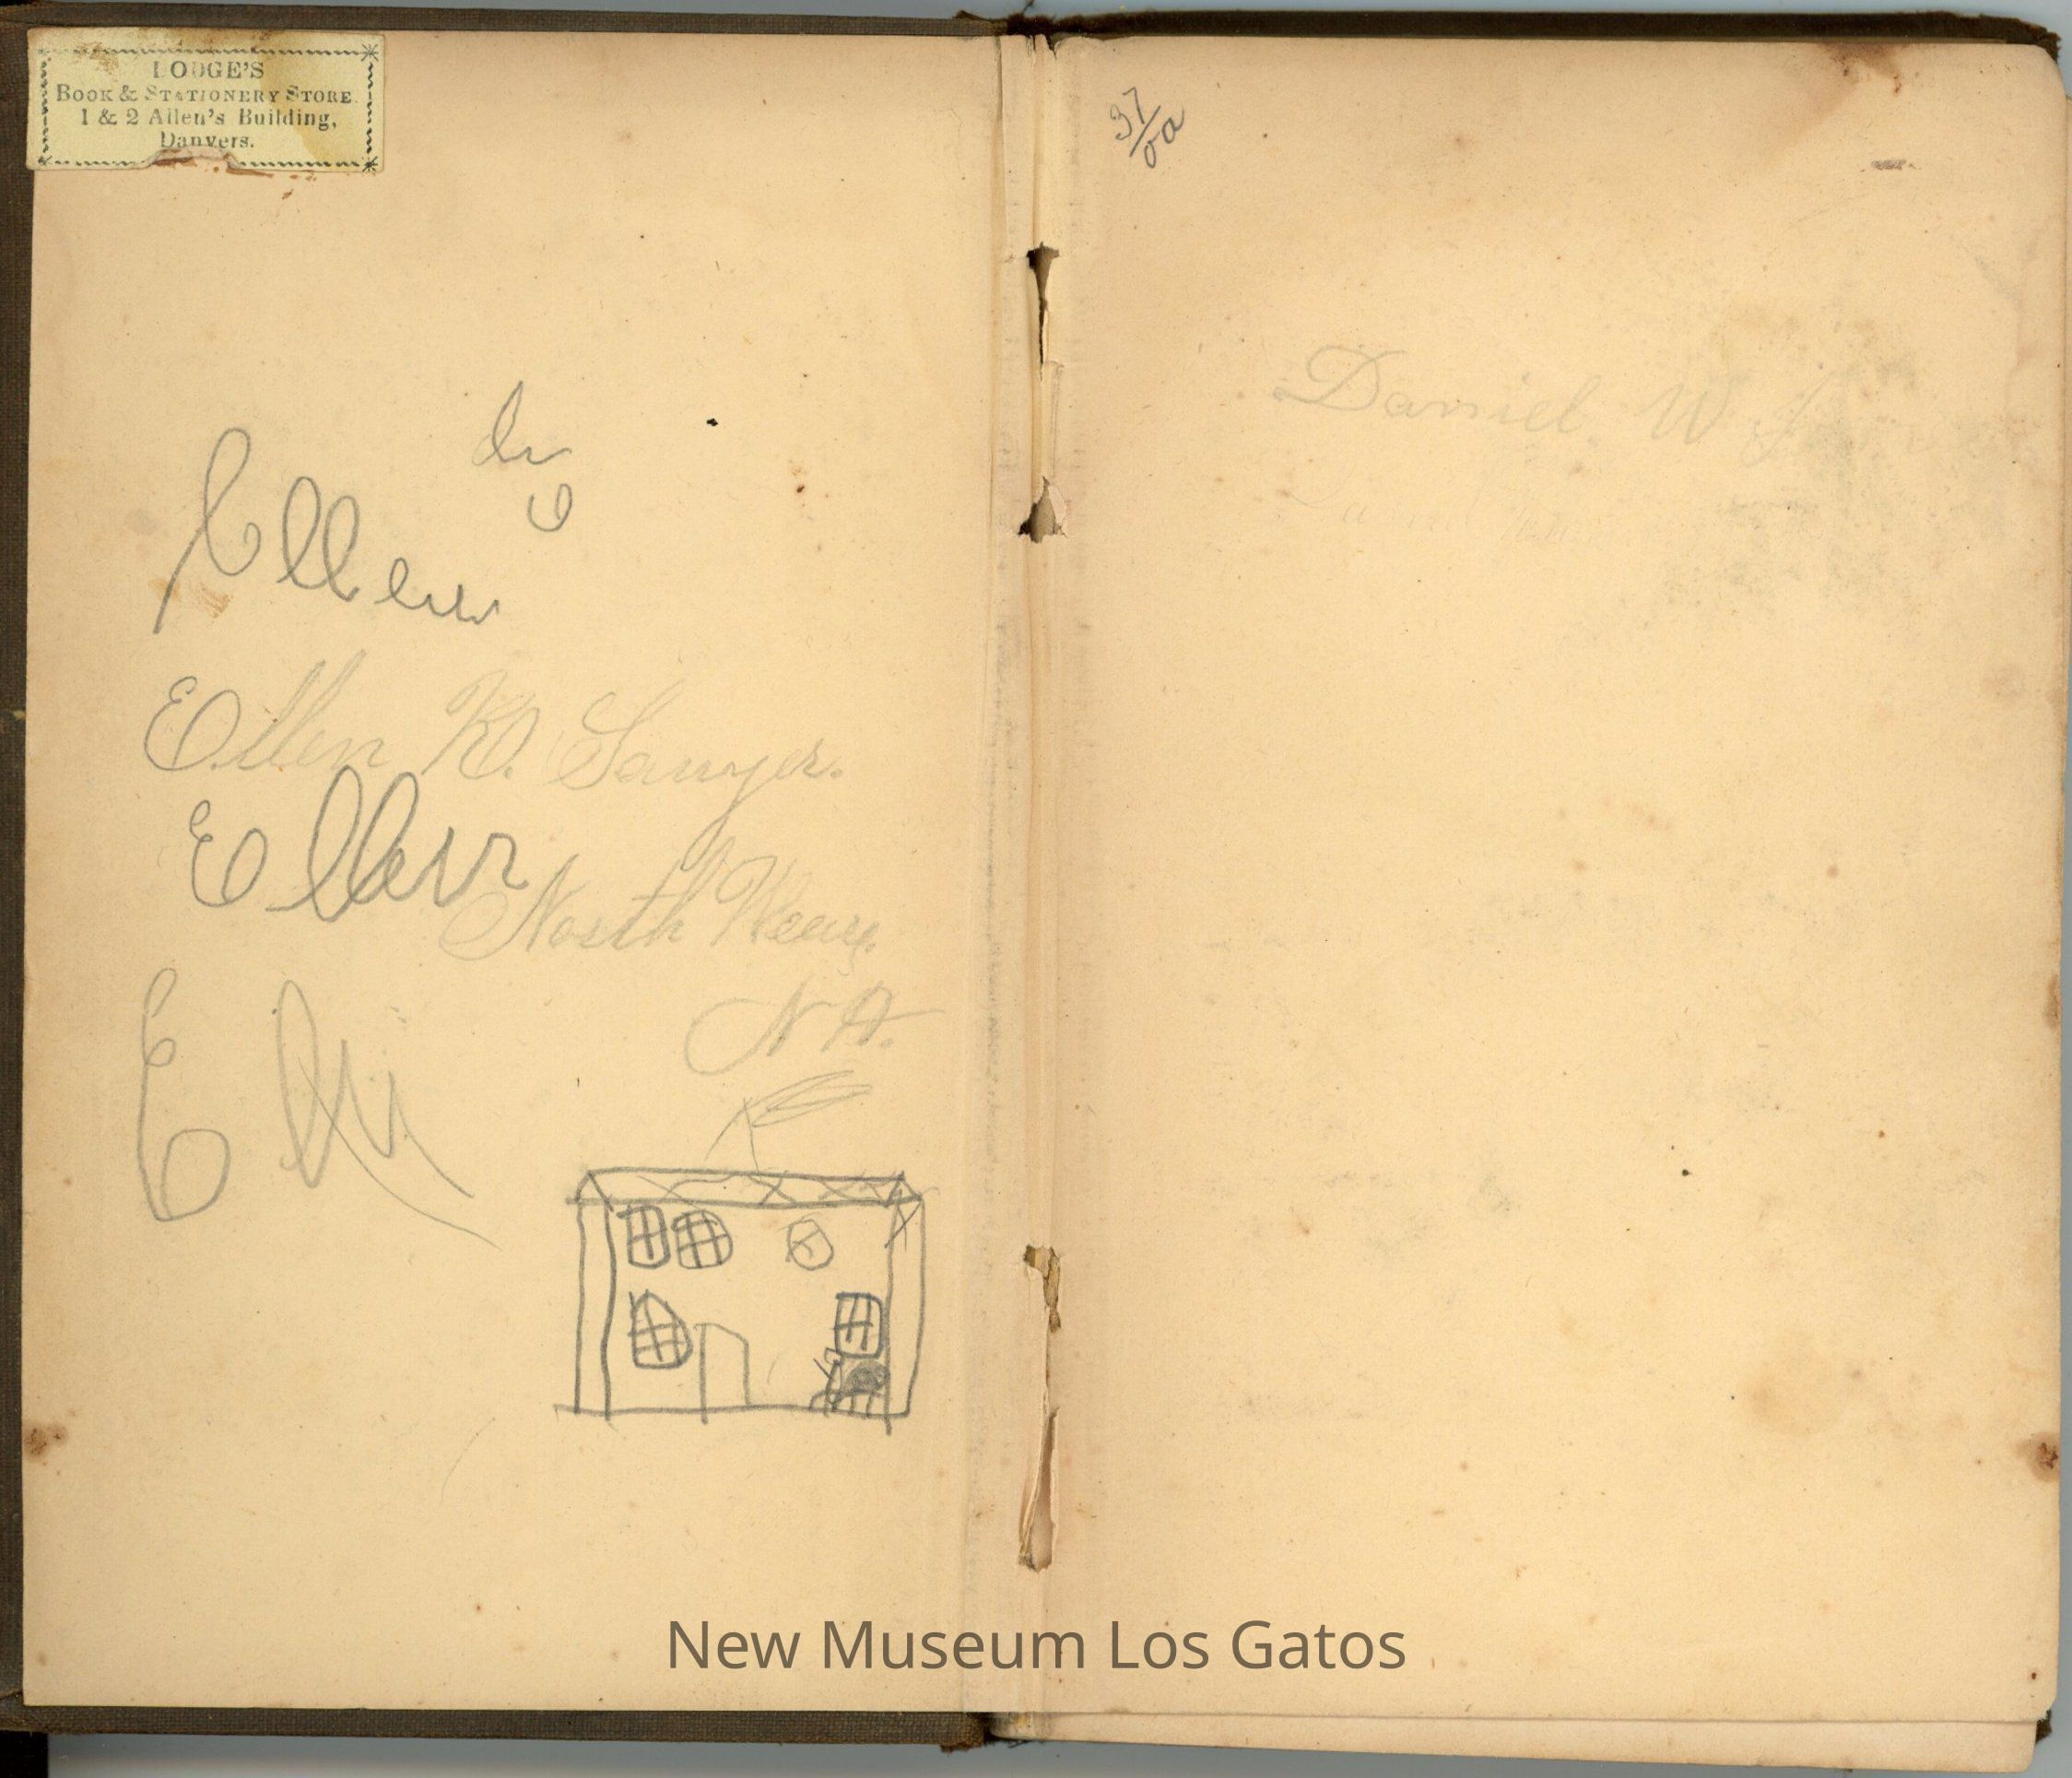 LODGE'S
BOOK & STATIONERY STORE.
1 & 2 Allen's Building,
Danvers.
Ellen
Ellen K. Sawyer.
Ellen
North Weare,
N H.
Ell
37/00
Daniel W
New Museum Los Gatos